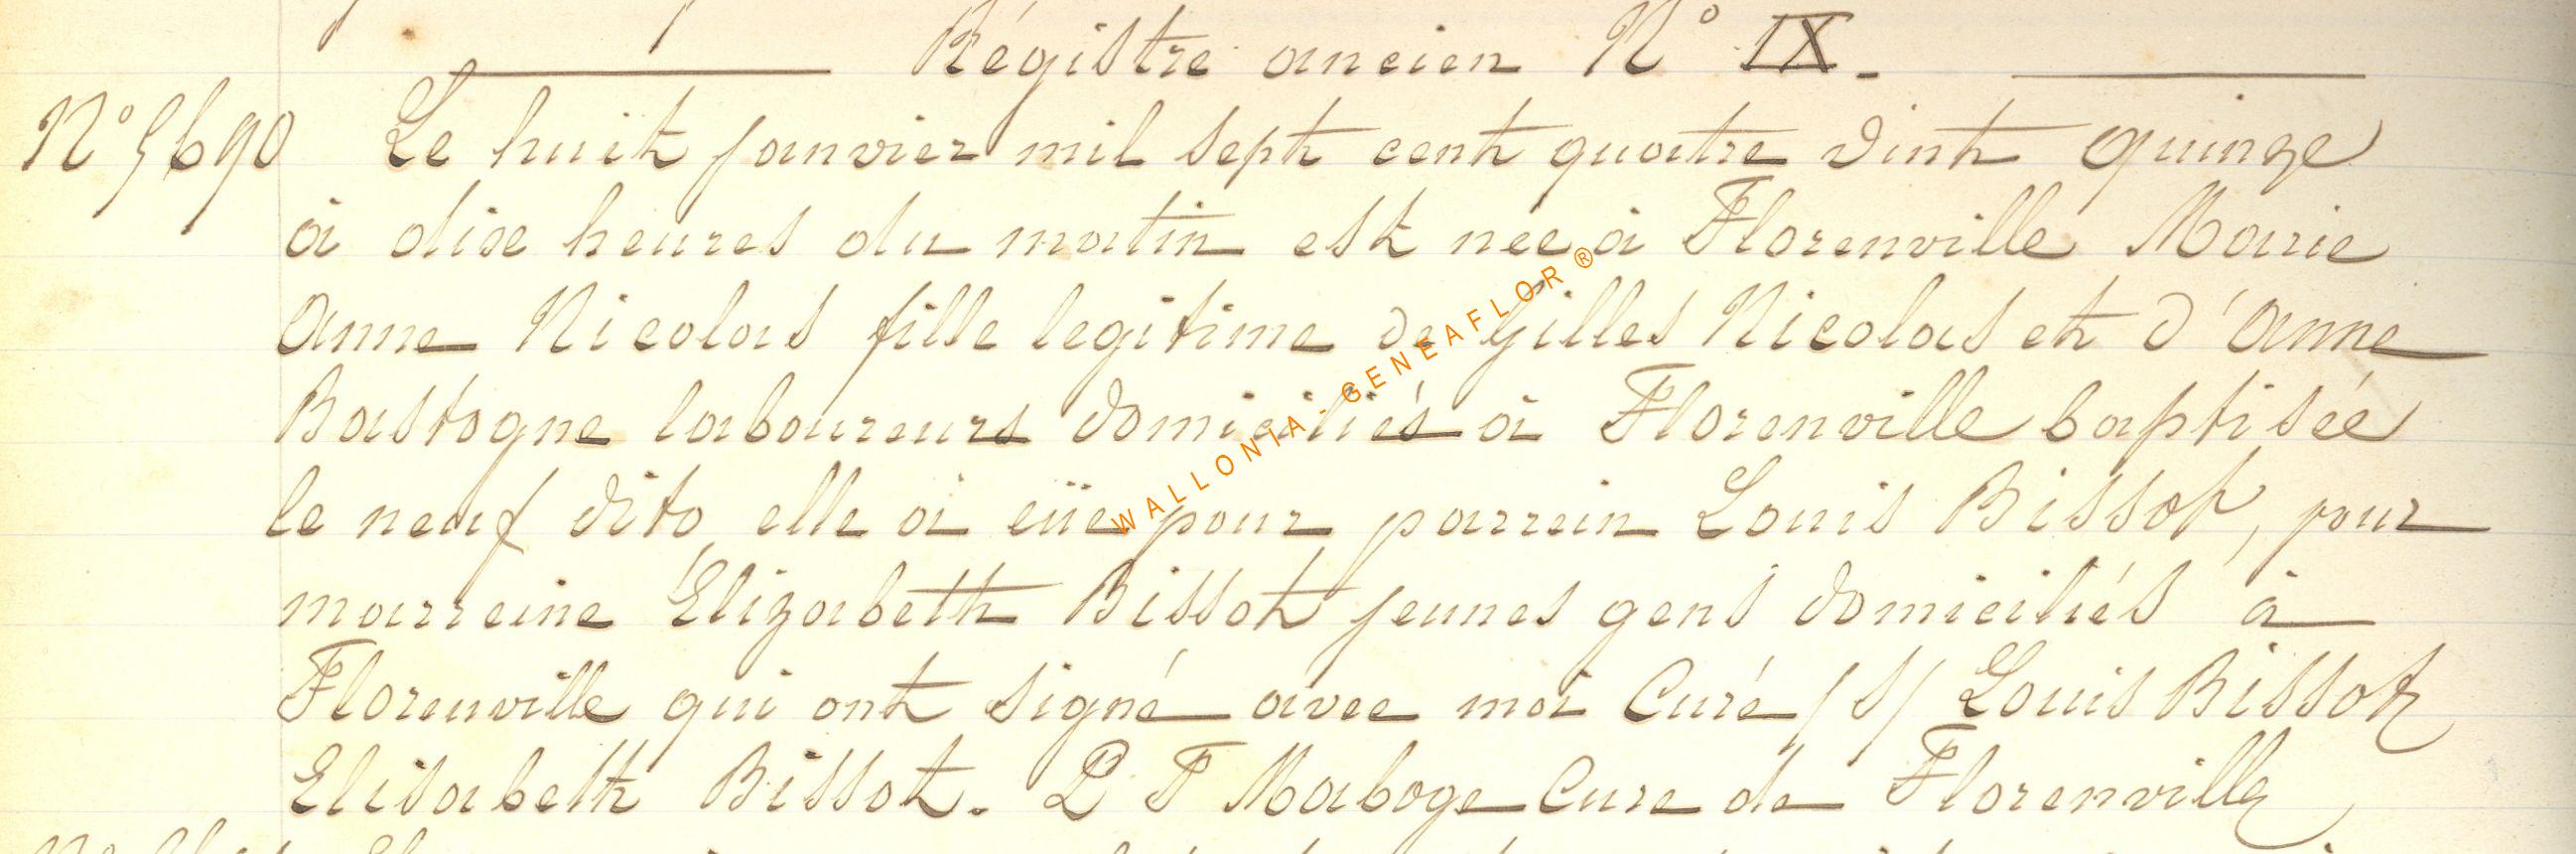 Régistre ancien N° IX.
N° 5690 Le huit janvier mil sept cent quatre vint quinze
à dixe heures du matin est neé à Florenville Marie
Anne Nicolas fille legitime de Gilles Nicolas et d'Anne
Bastogne laboureurs domiciliés à Florenville baptisée
le neuf dito elle à eüe pour parrein Louis Bissot, pour
marreine Élizabeth Bissot jeunes gens domiciliés à
Florenville qui ont signé avec moi Curé /S/ Louis Bissot
Elisabeth Bissot. P F Maboge Cure de Florenville
WALLONIA - GENEAFLOR ®